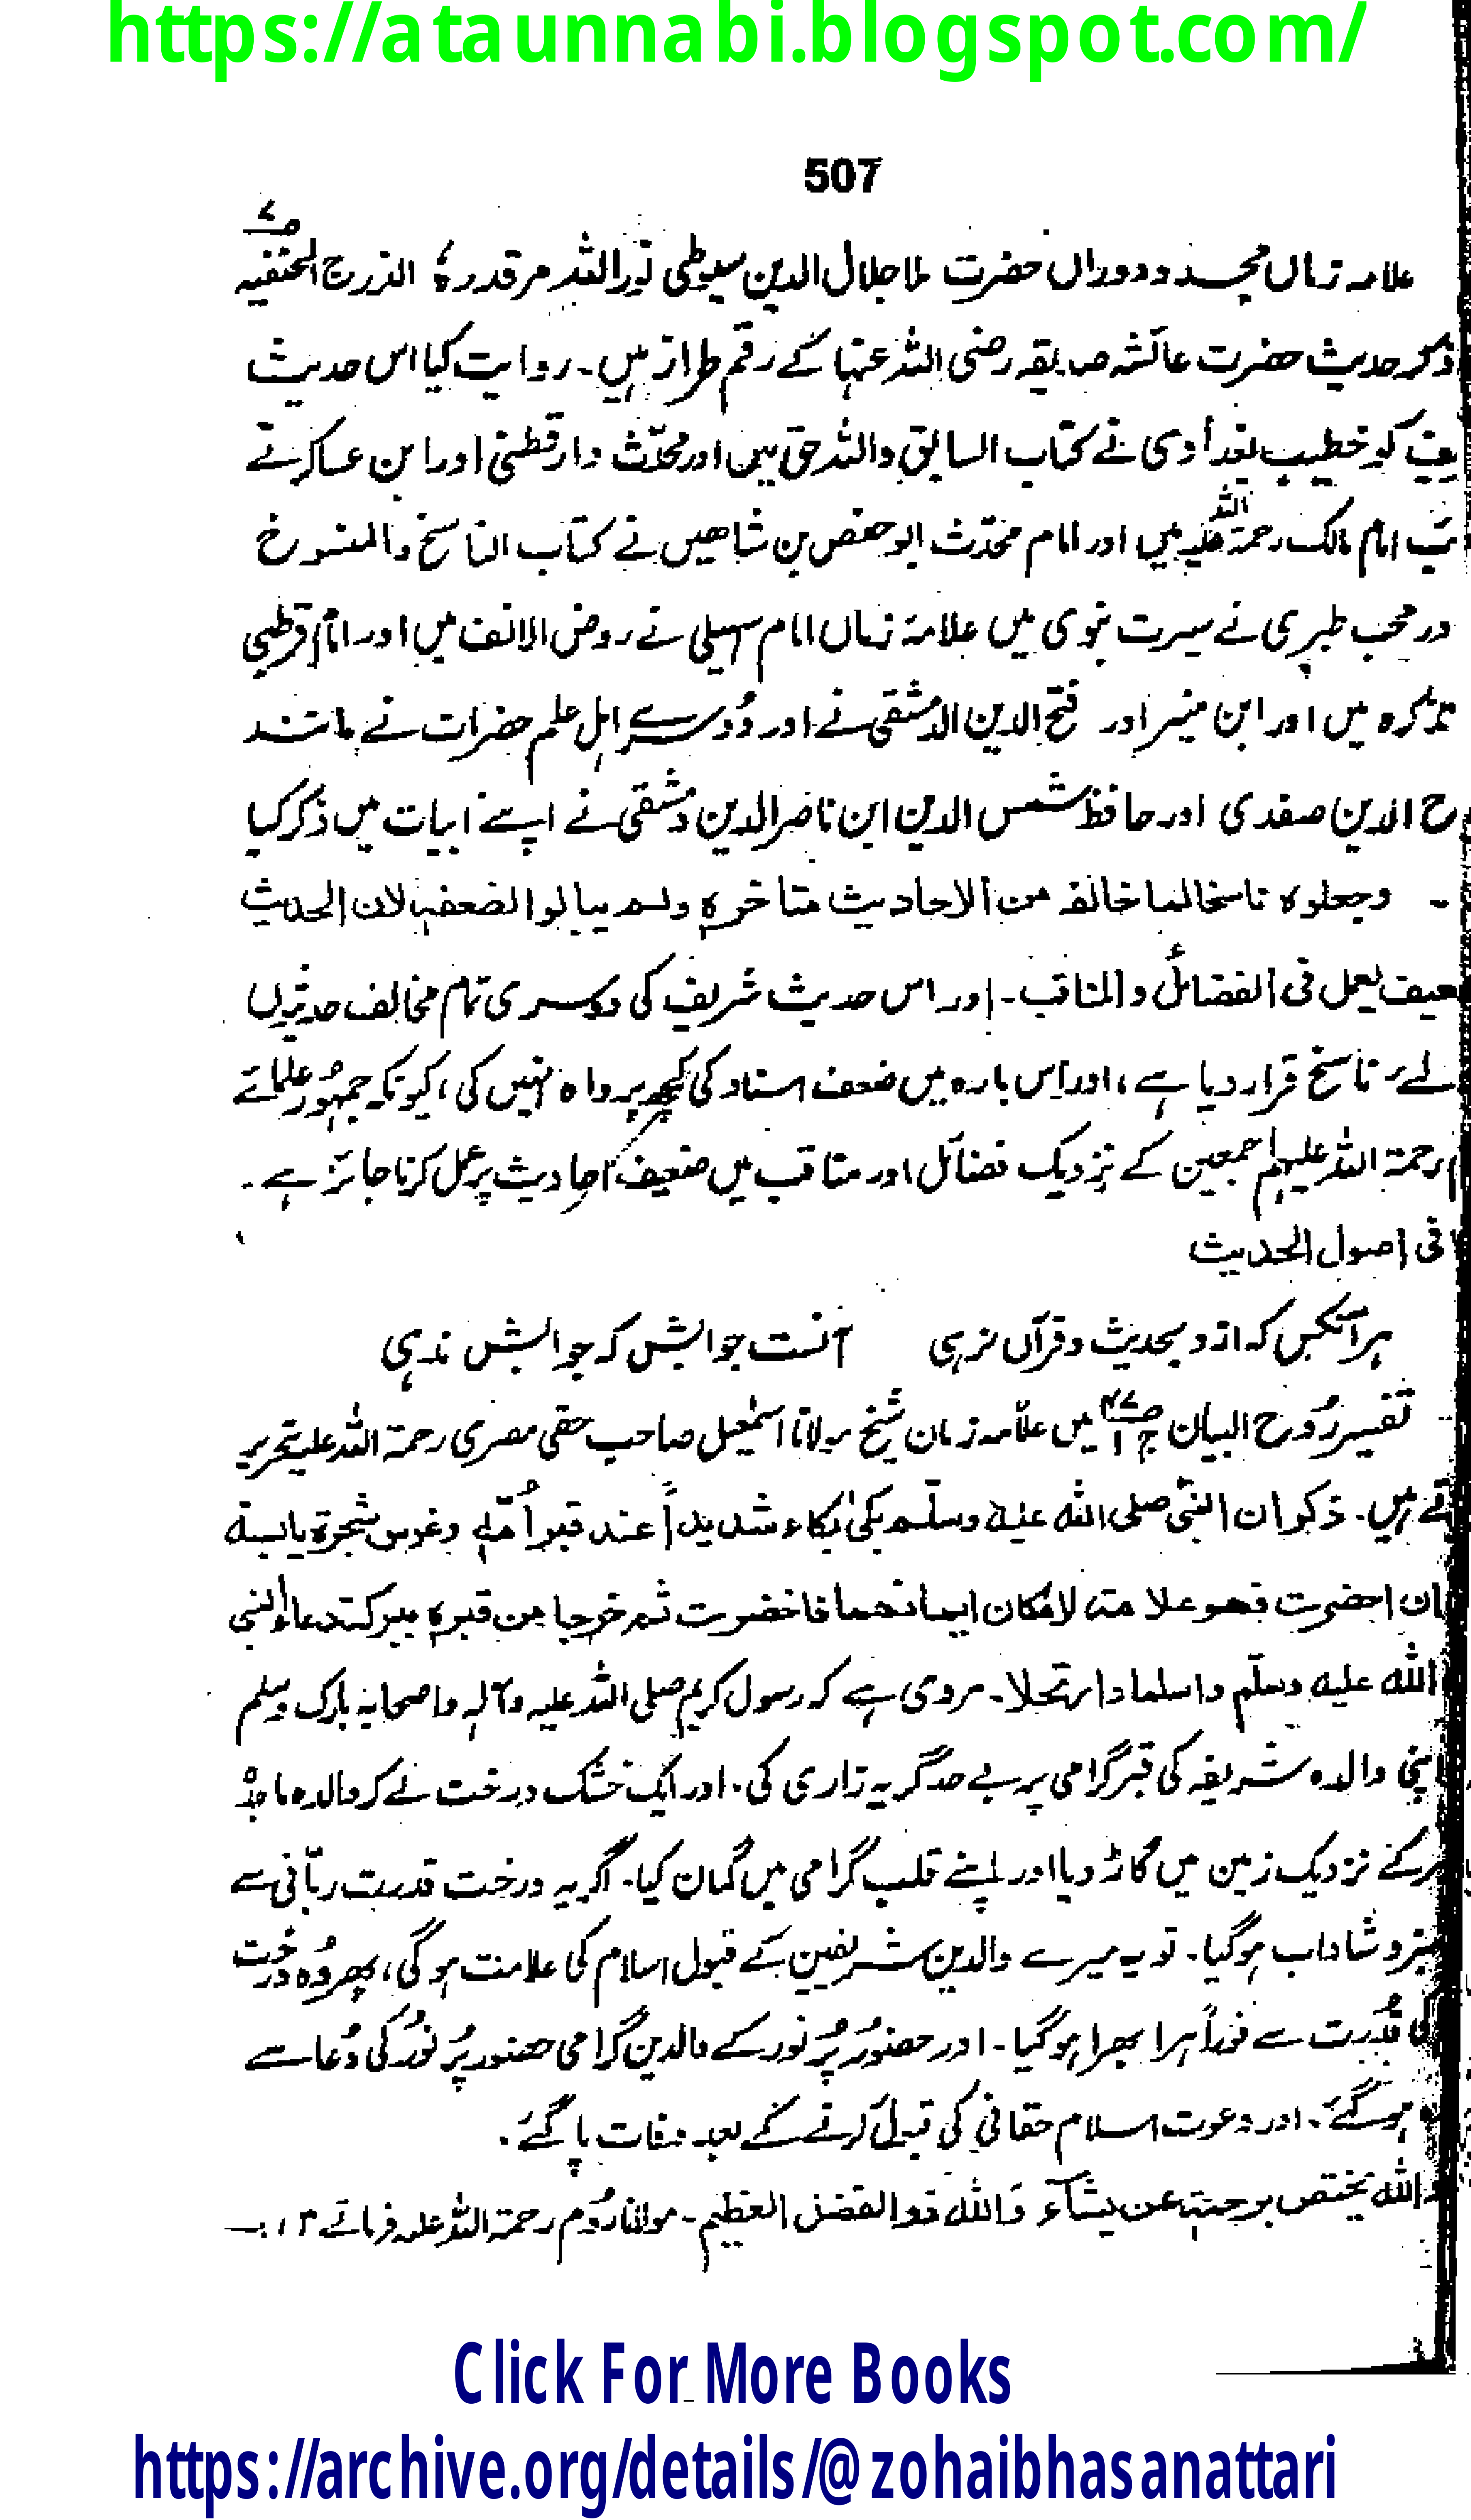 https://ataunnabi.blogspot.com/
507
ص۷
علامہ زماں مجدد دوراں حضرت ملا جلال الدین سیوطی نوراللہ مرقدرہٗ الدرج المحنفیہ
ذکر حدیث حضرت عائشہ صدیقہ رضی اللہ عنہا کے رقم طراز ہیں۔ روایت کیا اس حدیث
کو خطیب بغدادی نے کتاب السابق واللاحق میں اور محدّث دارقطنی اور ابن عساکر نے
امام مالک رحمۃ اللہ علیہ میں اور امام محدّث ابو حفص بن شاھیں نے کتاب الناسخ والمنسوخ
در محب طبری نے سیرت نبوی میں علامۂ زماں امام سہیلی نے روض الانف میں اور امام قرطبی
تذکرہ میں اور ابن منیر اور فتح الدین الدمشقی نے اور دُوسرے اہل علم حضرات نے مانند
ح الدین صفدی اور حافظ شمس الدین ابن ناصر الدین دمشقی نے اپنے ابیات میں ذکر کیا
۔ وجعلوہ ناسخالما خالفہ من الاحادیث متاخرہ ولم یبالوا لضعفہ لان الحدیث
عیف یعمل فی الفضائل والمناقب۔ اور اس حدیث شریف کی دوسری تمام مخالف حدیثوں
لئے ناسخ قرار دیا ہے، اور اِس بارہ میں ضعف اسناد کی کچھ پرواہ نہیں کی، کیونکہ جمہُور علمائے
رحمۃ اللہ علیہم اجمعین کے نزدیک فضائل اور مناقب میں ضعیف احادیث پر عمل کرنا جائز ہے۔
فی اصول الحدیث
ہر آنکس کہ ازو بحدیث وقرآں نرہی آنست جوابش کہ جوابش ندہی
تفسیر رُوح البیان ص۱۴۷ ج۱ میں علّامہ زمان شیخ مولانا اسمٰعیل صاحب حقی مصری رحمۃ اللہ علیہ تحریر
تے ہیں۔ ذکر ان النبّی صلی اللہ علیہ وسلّم بکیٰ بکاء شدیداً عند قبر اُمّہٖ وغرس شجرۃ یابسۃ
ان اخضرت فھو علامۃ لامکان ایمانھما فاخضرت ثم خرجا من قبرہ ببرکۃ دعاء النبی
اللہ علیہ وسلّم واسلما وارتحلا۔ مروی ہے کہ رسول کریم صلی اللہ علیہ وآلہٖ واصحابہٖ بارک وسلم
اپنی والدہ شریفہ کی قبر گرامی پر بے حد گریہ زاری کی۔ اور ایک خشک درخت لے کر والدہ ماجدہ
کے نزدیک زمین میں گاڑ دیا اور اپنے قلب گرامی میں گمان کیا۔ اگر یہ درخت قدرت ربّانی سے
سبز و شاداب ہو گیا۔ تو یہ میرے والدین شریفین کے قبول اسلام کی علامت ہو گی، پھر وُہ درخت
قُدرت سے فوراً ہرا بھرا ہو گیا۔ اور حضورُ پُر نور کے والدین گرامی حضور پُر نُور کی دُعا سے
ہو گئے۔ اور دعوت اسلام حقانی کی قبول کرنے کے بعد وفات پا گئے۔
اللہ یختص برحمتہٖ من یشآء وَاللہ ذوالفضل العظیم۔ مولانا رُوم رحمۃ اللہ علیہ فرماتے
Click For More Books
https://archive.org/details/@zohaibhasanattari